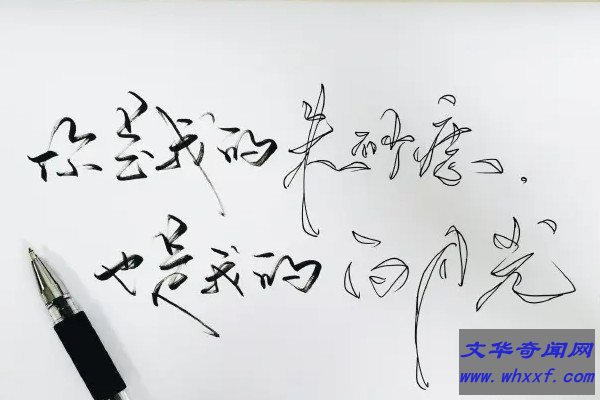 你是我的朱砂痣、.
也是我的白月光
文华奇闻网
www.whxxf.com